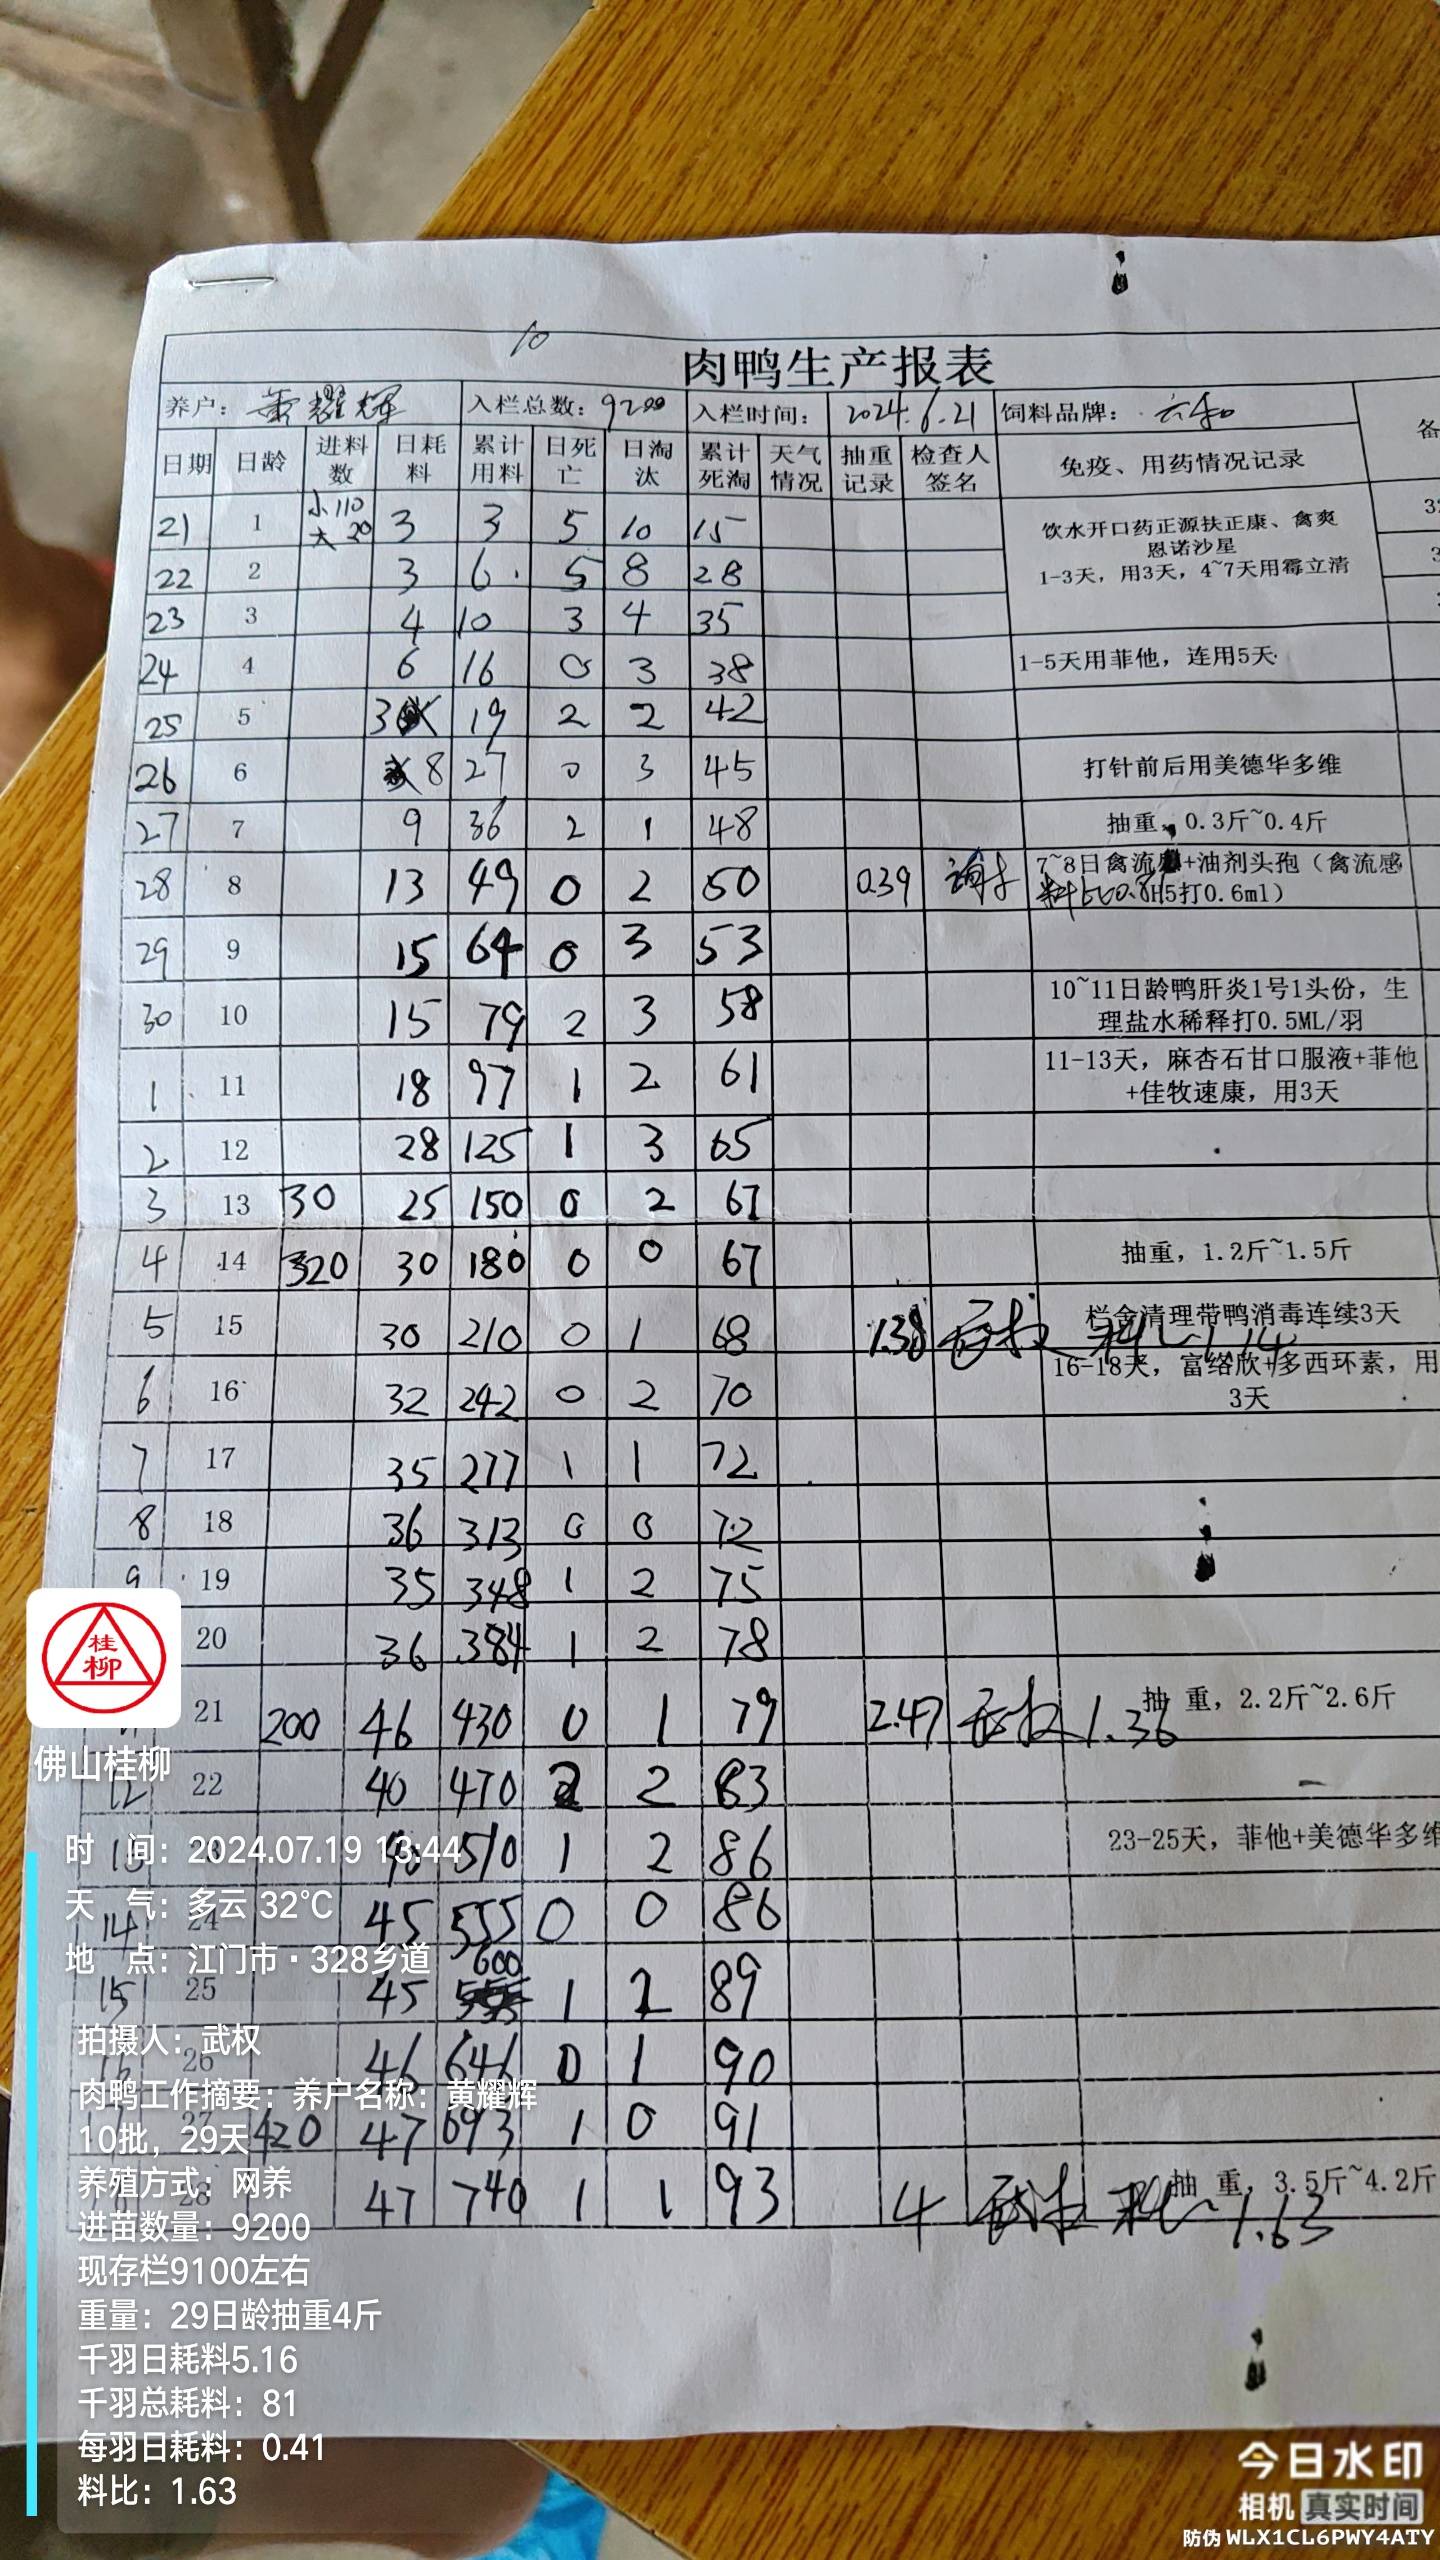 10
肉鸭生产报表
养户: 黄耀辉 入栏总数: 9200 入栏时间: 2024.6.21 饲料品牌: 六和
备
日期 日龄 进料数 日耗料 累计用料 日死亡 日淘汰 累计死淘 天气情况 抽重记录 检查人签名 免疫、用药情况记录
21 1 小110 大20 3 3 5 10 15 饮水开口药正源扶正康、禽爽
恩诺沙星
22 2 3 6 5 8 28 1-3天，用3天，4~7天用霉立清
23 3 4 10 3 4 35
24 4 6 16 0 3 38 1-5天用菲他，连用5天
25 5 3 19 2 2 42
26 6 8 27 0 3 45 打针前后用美德华多维
27 7 9 36 2 1 48 抽重，0.3斤~0.4斤
28 8 13 49 0 2 50 0.39 7~8日禽流感+油剂头孢（禽流感
H5打0.6ml）
29 9 15 64 0 3 53
30 10 15 79 2 3 58 10~11日龄鸭肝炎1号1头份，生
理盐水稀释打0.5ML/羽
1 11 18 97 1 2 61 11-13天，麻杏石甘口服液+菲他
+佳牧速康，用3天
2 12 28 125 1 3 65
3 13 30 25 150 0 2 67
4 14 320 30 180 0 0 67 抽重，1.2斤~1.5斤
5 15 30 210 0 1 68 1.38 武权 料比1.14 栏舍清理带鸭消毒连续3天
6 16 32 242 0 2 70 16-18天，富络欣+多西环素，用
3天
7 17 35 277 1 1 72
8 18 36 313 0 0 72
9 19 35 348 1 2 75
20 36 384 1 2 78
21 200 46 430 0 1 79 2.47 武权 1.36 抽 重，2.2斤~2.6斤
12 22 40 470 2 2 83
13 23 40 510 1 2 86 23-25天，菲他+美德华多维
14 24 45 555 0 0 86
15 25 45 600 1 2 89
16 26 46 646 0 1 90
17 27 420 47 693 1 0 91
28 47 740 1 1 93 4 武权 料比1.63 抽 重，3.5斤~4.2斤
桂
柳
佛山桂柳
时 间: 2024.07.19 13:44
天 气: 多云 32℃
地 点: 江门市·328乡道
拍摄人: 武权
肉鸭工作摘要: 养户名称: 黄耀辉
10批，29天
养殖方式: 网养
进苗数量: 9200
现存栏9100左右
重量: 29日龄抽重4斤
千羽日耗料5.16
千羽总耗料: 81
每羽日耗料: 0.41
料比: 1.63
今日水印
相机 真实时间
防伪 WLX1CL6PWY4ATY